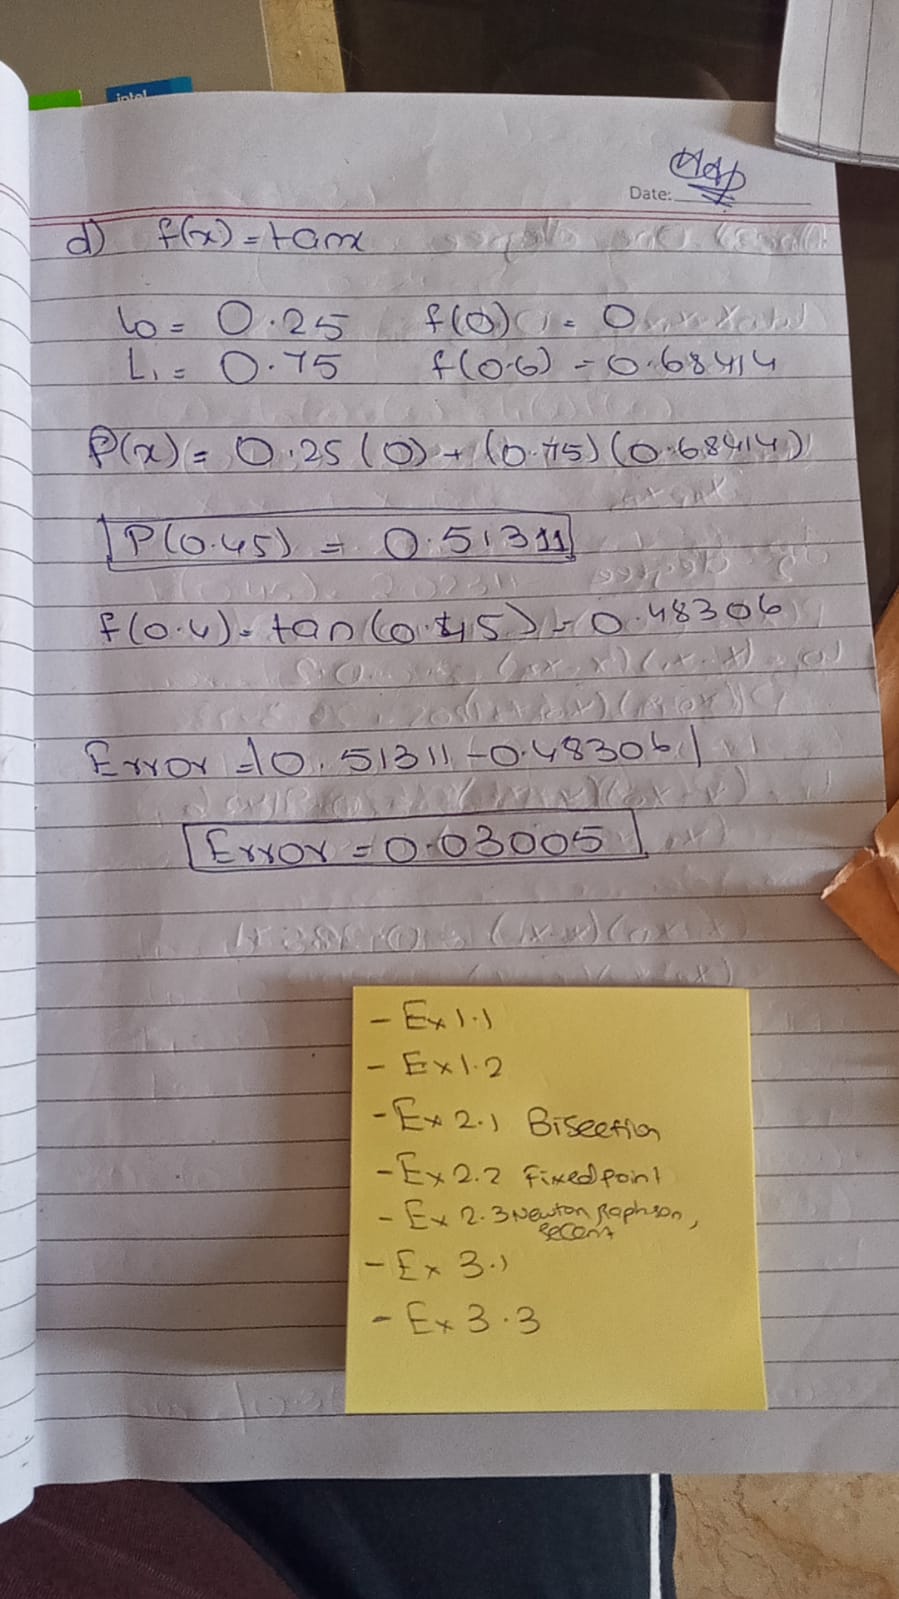 intel
Date:
d) f(x) = tanx
L0 = 0.25 f(0) = 0
L1 = 0.75 f(0.6) = 0.68414
P(x) = 0.25 (0) + (0.75) (0.68414)
P(0.45) = 0.51311
f(0.4) = tan(0.45) = 0.48306
Error = |0.51311 - 0.48306|
Error = 0.03005
- Ex 1.1
- Ex 1.2
- Ex 2.1 Bisection
- Ex 2.2 Fixed point
- Ex 2.3 Newton Raphson,
Secant
- Ex 3.1
- Ex 3.3